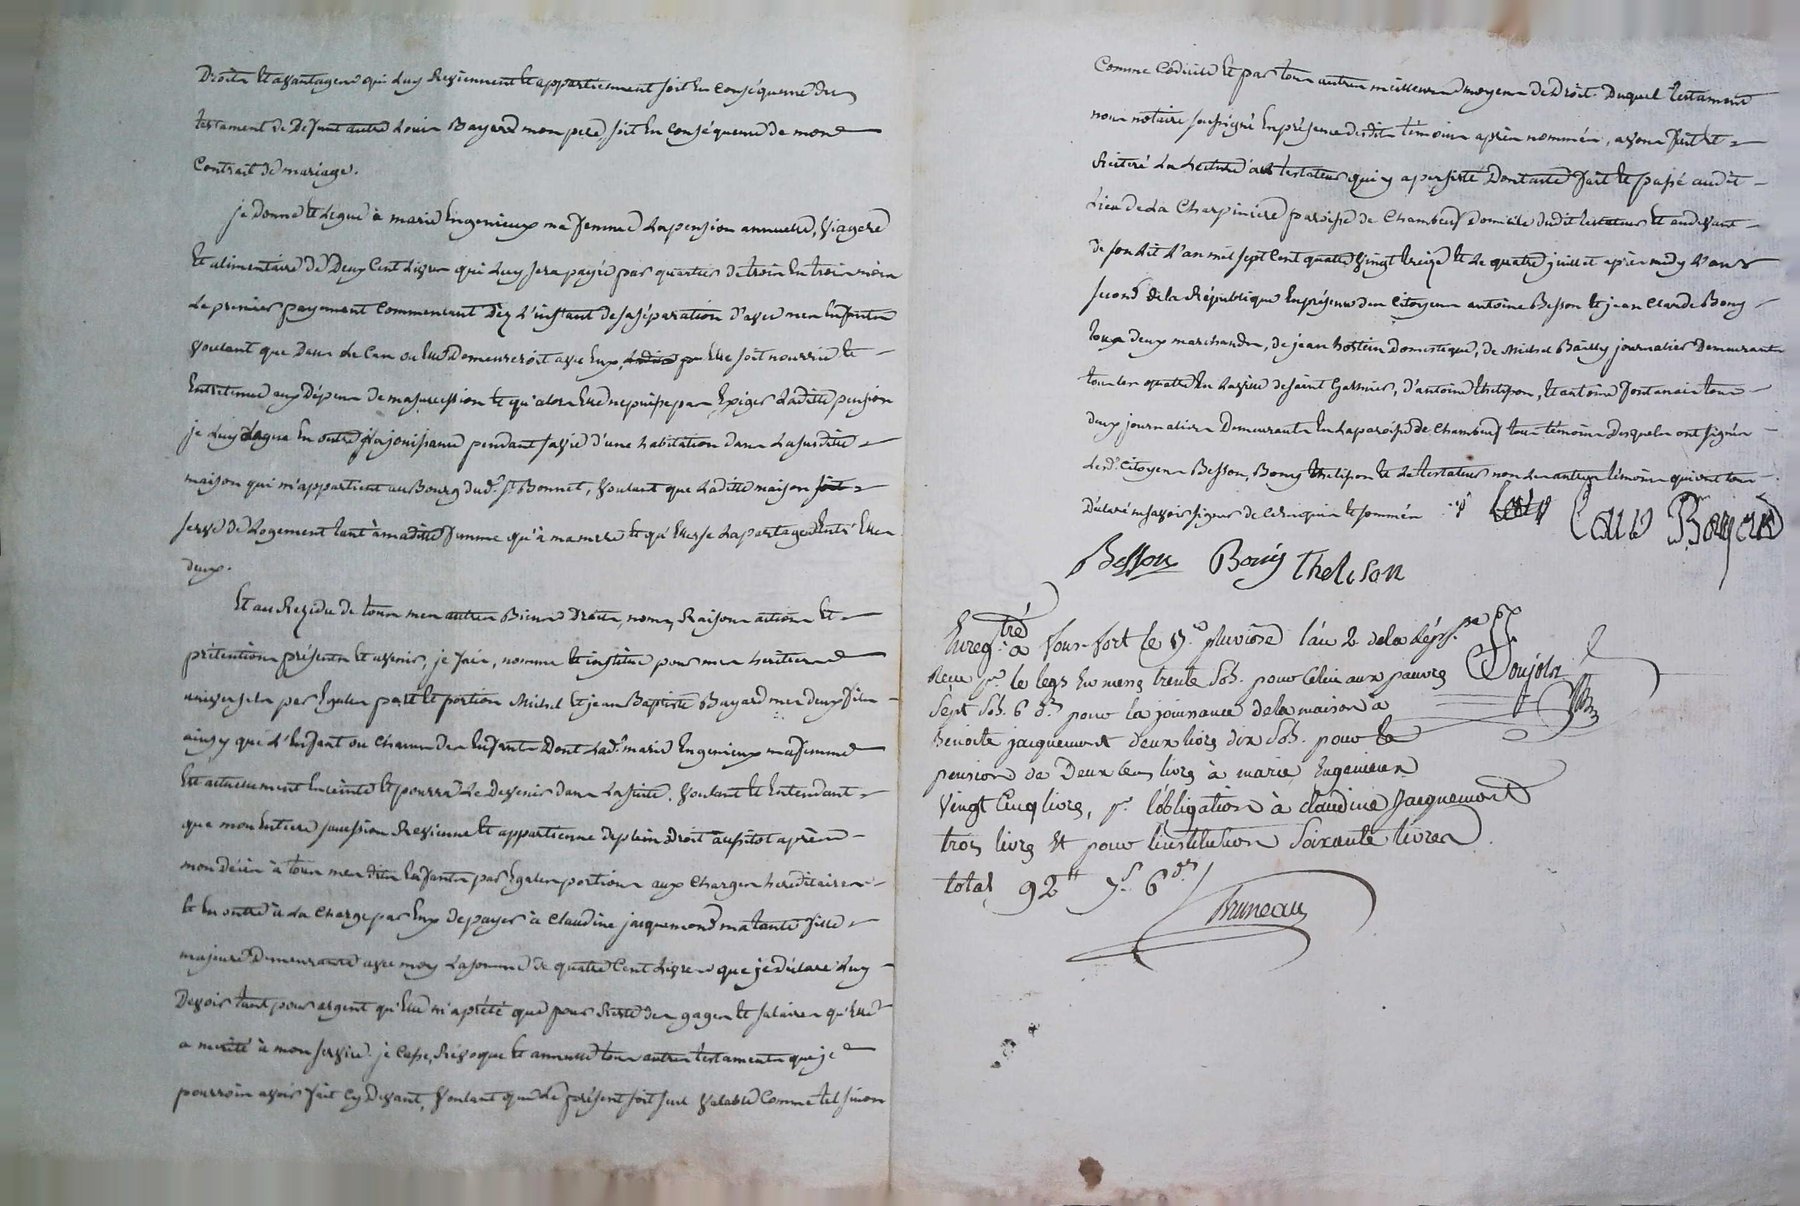 Droits et avantages qui luy reviennent et appartiennent soit en conséquence du
testament de defunt autre Louis Bayard mon pere, soit en conséquence de mon
Contrat de mariage.
je donne et legue à marie Engenieux ma femme la pension annuelle, viagere
et alimentaire de Deux Cent Livres qui luy sera payée par quartier de trois en trois mois
le premier payement Commencant dez l'instant de sa séparation d'avec mes Enfants
voulant que Dans le Cas ou elle Demeureroit avec Eux, elle soit nourrie et
Entretenue aux Dépens de ma succession et qu'alors Elle ne puisse pas Exiger Laditte pension
je luy Legue en outre la jouissance pendant sa vie d'une habitation dans la susditte
maison qui m'appartient au Bourg dud. St Bonnet, voulant que Laditte maison soit
serve de Logement tant à maditte femme qu'à ma mere et qu'elles se la partagent Entr'elles
deux.
Et au Rezidu de tous mes autres Biens Droits, noms, Raisons actions et
prétentions présents et avenir, je fais, nomme et institue pour mes heritiers
universels par Egales part et portion Michel et jean Baptiste Bayard mes deux fils
ainsy que L'Enfant ou chacun des Enfants Dont Lad. marie Engenieux ma femme
Est actuellement Enceinte et pourra Le Devenir dans La suite, voulant et Entendant
que mon Entiere succession Revienne et appartienne de plein droit aussitot après
mon Décès à tous mes dits Enfants par Egales portions aux charges hereditaires
et en outre à La Charge par Eux de payer à Claudine jacquemond ma tante fille
majeure Demeurante avec moy La somme de quatre Cent Livres que je déclare Luy
Devoir tant pour argent qu'Elle m'a prété que pour Reste des gages et salaires qu'Elle
a merité à mon service. je Casse, Révoque et annulle tous autres testaments que je
pourrois avoir fait Cy Devant, voulant que Le présent soit seul valable Comme tel sinon
Comme Codicile et par tous autres meilleurs moyens de Droit. Duquel testament
nous notaire soussigné En présence desdits témoins après nommés, avons fait et
Réitéré La Lecture au testateur qui y a persisté Dont acte Fait et passé audit
Lieu de La Charpiniere paroisse de Chambeuf domicile dudit testateur et au devant
de son lit L'an mil sept Cent quatre vingt treize et Le quatre juillet après midy L'an
second de la République En présence des Citoyens antoine Besson et jean Claude Bony
tous deux marchands, de jean hostein Domestique, de Michel Bailly journalier Demeurants
tous les quatre En La ville de saint Galmier, d'antoine thelison, et antoine fontanais tous
deux journaliers Demeurants En La paroisse de Chambeuf tous témoins Desquels ont signés
Lesd. Citoyens Besson, Bony thelison et Le testateur non Les autres témoins qui ont tous
Déclaré ne savoir signer de ce Enquis et sommés Louis Bayard
Besson Bony Thelison
Enreg.tré à Fons-fort le 17.e pluviose l'an 2 de la Rép.
Reçu pr. le legs En mens trente sols. pour Celui aux pauvres
Sept sols. 6 ds. pour la jouissance de la maison à
Benoite jacquemont deux livres dix sols. pour la
pension de Deux cens livres à marie Engenieux
Vingt Cinq livres, pr. l'obligation à claudine Jacquemont
trois livres et pour l'institution Soixante livres
total 92tt 7s. 6ds.
Bruneau